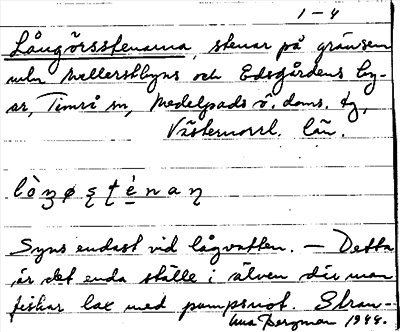 1-4
Långörsstenarna, stenar på gränsen
mln Mellerstbyns och Edsgårdens by-
ar, Timrå sn, Medelpads ö. doms. tg,
Västernorrl. län.
Syns endast vid lågvatten. — Detta
är det enda ställe i älven där man
fiskar lax med pumpnot. Stran-
Una Bergman 1944.